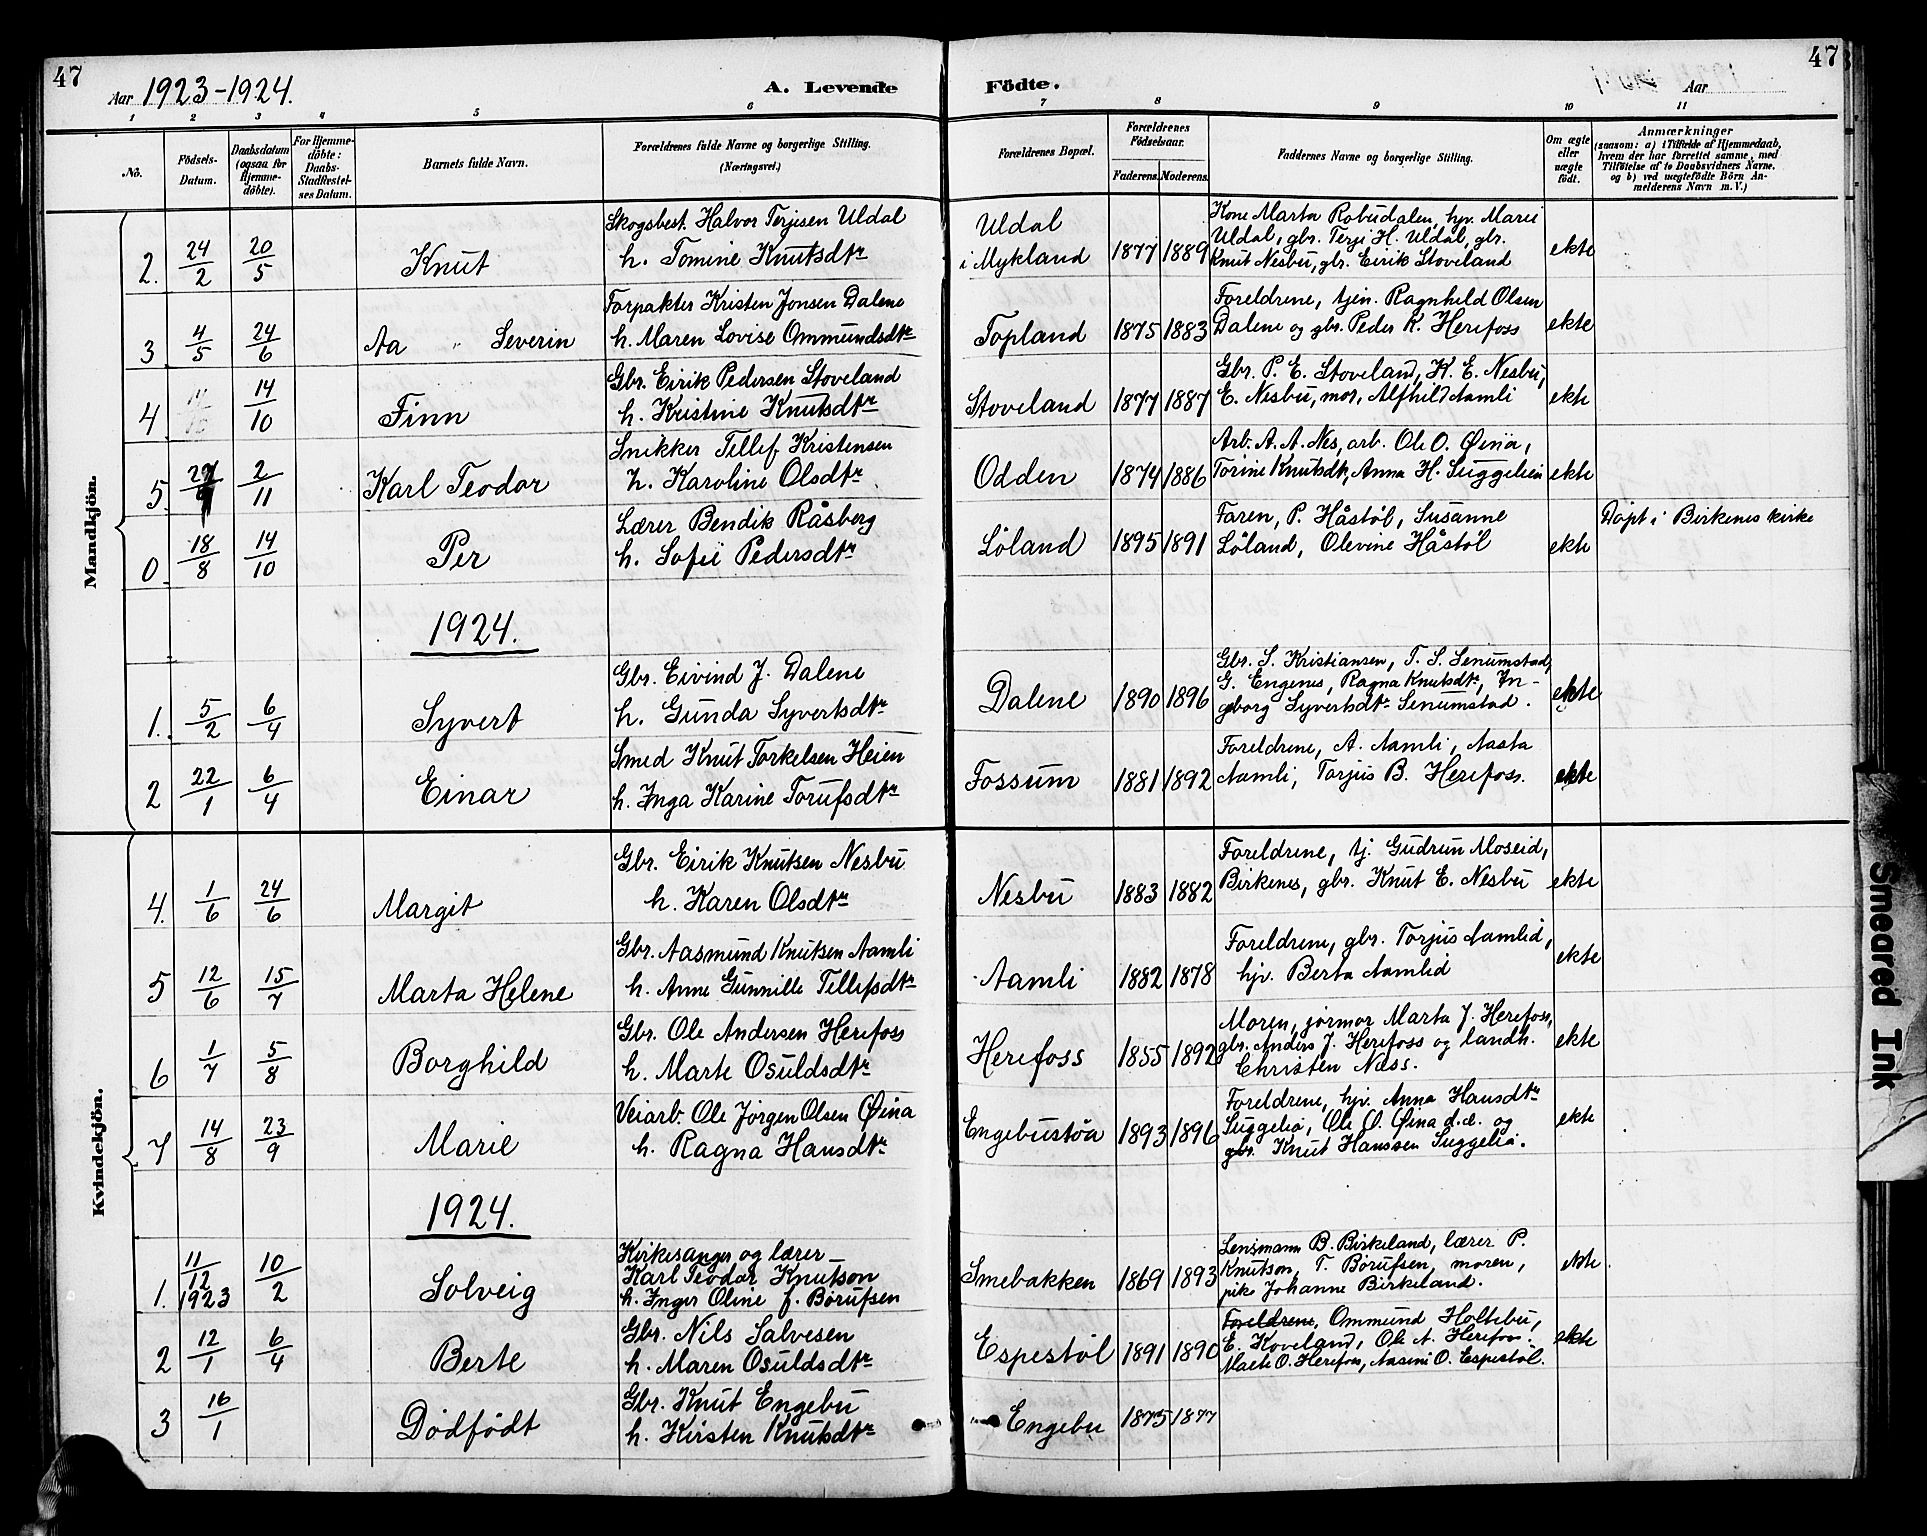 47
Aar 1923-1924.
A. Levende Födte.
Aar
47
1 2 3 4 5 6 7 8 9 10 11
No.
Födsels-Datum.
Daabsdatum (ogsaa for Hjemmedöbte).
For Hjemmedöbte: Daabs-Stadfæstelses Datum.
Barnets fulde Navn.
Forældrenes fulde Navne og borgerlige Stilling. (Næringsvei.)
Forældrenes Bopæl.
Forældrenes Födselsaar.
Faderens. Moderens.
Faddernes Navne og borgerlige Stilling.
Om ægte eller uægte födt.
Anmærkninger
(saasom: a) i Tilfælde af Hjemmedaab, hvem der har forrettet samme, med Tilföielse af to Daabsvidners Navne. og b) ved uægtefödte Börn Anmelderens Navn m.V.)
Mandkjön.
2. 24/2 20/5 Knut
Skogsbest. Halvor Terjesen Uldal
h. Tomine Knutsdtr
Uldal
i Mykland 1877 1889
Kone Marta Robudalen, hjv. Marei
Uldal, gbr. Terje H. Uldal, gbr.
Knut Nesbu, gbr. Eirik Stoveland
ekte
3 4/5 24/6 Aa " Severin
Forpakter Kristen Jonsen Dalene
h. Maren Lovise Ommundsdtr
Topland 1875 1883
Foreldrene, tjen. Ragnhild Olsen
Dalene og gbr. Peder K. Herefoss
ekte
4 14/10 Finn
Gbr. Eirik Pedersen Stoveland
h. Kristine Knutsdtr
Stoveland 1877 1887
Gbr. P. E. Stoveland, K. E. Nesbu,
E. Nesbu, mor, Alfhild Aamli
ekte
5. 2/11 Karl Teodor
Snikker Tellef Kristensen
h. Karoline Olsdtr
Odden 1874 1886
Arb. A. A. Nes, arb. Ole O. Øina,
Torine Knutsdtr, Anna H. Suggelia
ekte
0 18/8 14/10 Per
Lærer Bendik Råsberg
h. Sofie Pedersdtr
Løland 1895 1891
Faren, P. Håstøl, Susanne
Løland, Olevine Håstøl
ekte
Døpt i Birkenes kirke
1924.
1. 5/2 6/4 Syvert
Gbr. Eivind J. Dalene
h. Gunda Syvertsdtr
Dalene 1890 1896
Gbr. S. Kristiansen, T. S. Senumstad,
G. Engenes, Ragna Knutsdtr, In-
geborg Syvertsdtr Senumstad.
ekte
2 22/1 6/4 Einar
Smed Knut Torkelsen Heien
h. Inga Karine Torufsdtr
Fossum 1881 1892
Foreldrene, A. Aamli, Aasta
Aamli, Torjus B. Herefoss.
ekte
Kvindekjön.
4. 1/6 24/6 Margit
Gbr. Eirik Knutsen Nesbu
h. Karen Olsdtr
Nesbu 1883 1882
Foreldrene, tj. Gudrun Moseid,
Birkenes, gbr. Knut E. Nesbu
ekte
5 12/6 15/7 Marta Helene
Gbr. Aasmund Knutsen Aamli
h. Anne Gunnille Tellefsdtr
Aamli 1882 1878
Foreldrene, gbr. Torjus Aamlid,
hjv. Berta Aamlid
ekte
6 1/7 5/8 Borghild
Gbr. Ole Andersen Herefoss
h. Marte Osuldsdtr
Herefoss 1855 1892
Moren, jormor Marta J. Herefoss,
gbr. Anders J. Herefoss og landh.
Christen Næss.
ekte
7 14/8 23/9 Marie
Veiarb. Ole Jørgen Olsen Øina
h. Ragna Hansdtr
Engebustøa 1893 1896
Foreldrene, hjv. Anna Hansdtr
Suggelia, Ole O. Øina d.e. og
gbr. Knut Hanssen Suggelia.
ekte
1924.
1. 11/12 1923 10/2 Solveig
Kirkesanger og lærer
Karl Teodor Knutson
h. Inger Oline f. Børufsen
Smebakken 1869 1893
Lensmann B. Birkeland, lærer P.
Knutson, T. Børufsen, moren,
pike Johanne Birkeland.
ekte
2 12/1 6/4 Berte
Gbr. Nils Salvesen
h. Maren Osuldsdtr
Espestøl 1891 1890
Foreldrene, Ommund Holtebu,
E. Koveland, Ole A. Herefoss.
O. Herefoss, O. Espestøl.
ekte
3 16/1 Dødfødt
Gbr. Knut Engebu
h. Kirsten Knutsdtr
Engebu 1875 1877
Smeared Ink